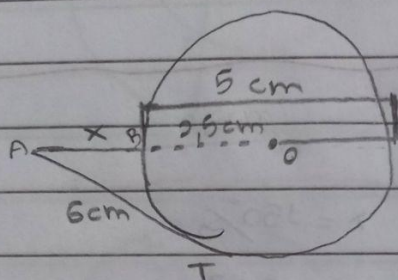 5 cm
A x B 2,5cm O
6cm
T